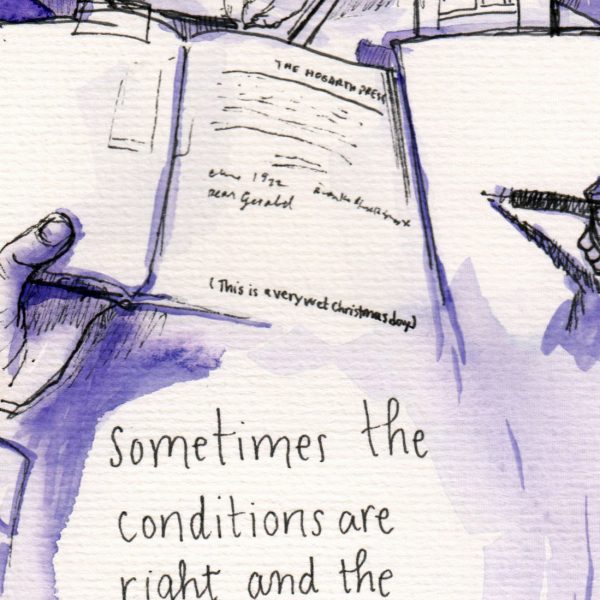 THE HOGARTH PRESS
1922
Dear Gerald
(This is a very wet Christmas day)
Sometimes the
conditions are
right and the